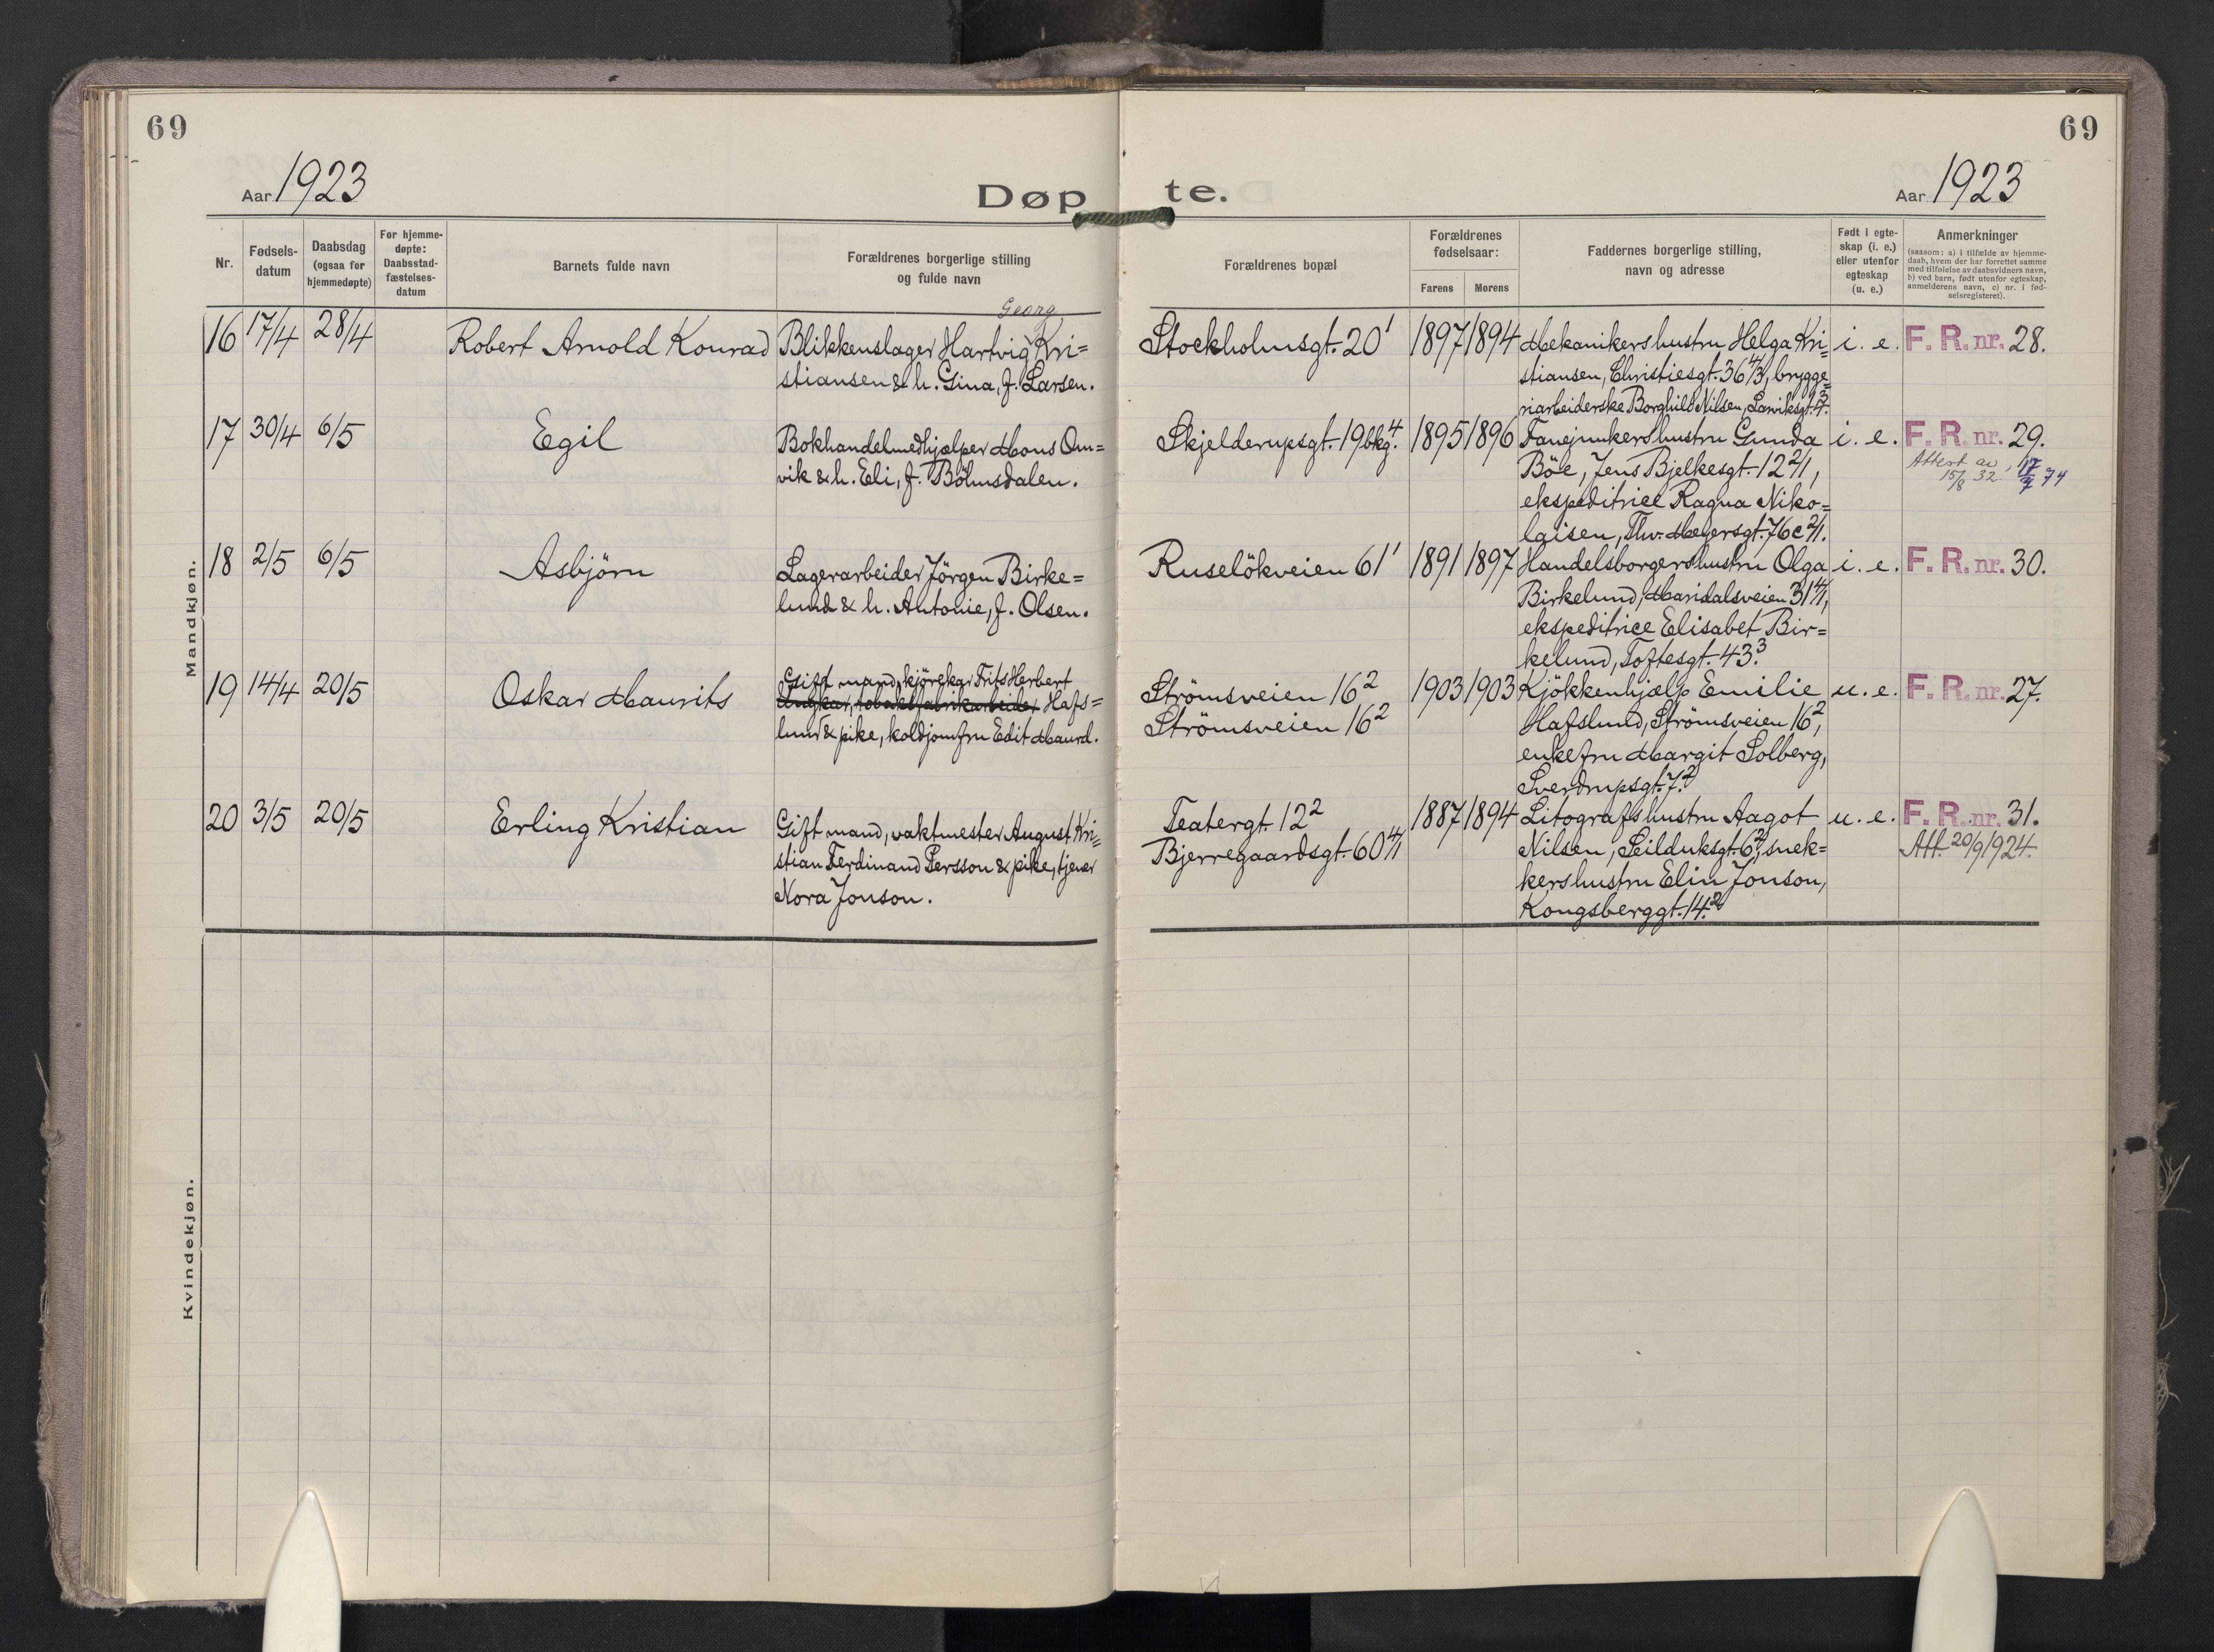 69
69
Aar 1923
Døpte.
Aar 1923
Nr.
Fødselsdatum
Daabsdag (ogsaa for hjemmedøpte)
For hjemmedøpte: Daabsstadfæstelsesdatum
Barnets fulde navn
Forældrenes borgerlige stilling og fulde navn
Forældrenes bopæl
Forældrenes fødselsaar:
Farens
Morens
Faddernes borgerlige stilling, navn og adresse
Født i egteskap (i. e.) eller utenfor egteskap (u. e.)
Anmerkninger
(saasom: a) i tilfælde av hjemmedaab, hvem der har forrettet samme med tilføielse av daabsvidners navn, b) ved barn, født utenfor egteskap, anmelderens navn, c) nr. i fødselsregisteret).
Mandkjøn.
16 17/4 28/4 Robert Arnold Konrad
Georg
Blikkenslager Hartvig Kri=
stiansen & h. Gina, f. Larsen.
Stockholmsgt. 20¹ 1897 1894
Mekanikershustru Helga Kri=
stiansen, Christiesgt. 36 4/3, brygge=
riarbeiderske Borghild Nilsen, Larviksgt. 4.³
i. e. F. R. nr. 28.
17 30/4 6/5 Egil
Bokhandelmedhjælper Mons Om=
vik & h. Eli, f. Böhnsdalen.
Skjelderupsgt. 19 bkg.⁴ 1895 1896
Fanejunkershustru Gunda
Böe, Jens Bjelkesgt. 12 2/1,
ekspeditrice Ragna Niko=
laisen, Thv. Meyersgt. 76 c 2/1.
i. e. F. R. nr. 29.
Attest av 15/8 32, 17/7 74
18 2/5 6/5 Asbjörn
Lagerarbeider Jörgen Birke=
lund & h. Antonie, f. Olsen.
Ruselökveien 61¹ 1891 1897
Handelsborgershustru Olga
Birkelund, Maridalsveien 31 4/1,
ekspeditrice Elisabet Bir=
kelund, Toftesgt. 43.³
i. e. F. R. nr. 30.
19 14/4 20/5 Oskar Maurits
Gift mand, kjörekar Frits Herbert
Ungkar, tobaksfabrikarbeider Hafs=
lund & pike, koldjomfru Edit Maurd.
Strömsveien 16²
Strömsveien 16²
1903 1903
Kjökkenhjælp Emilie
Hafslund, Strömsveien 16²,
enkefru Margit Solberg,
Sverdrupsgt. 7.²
u. e. F. R. nr. 27.
20 3/5 20/5 Erling Kristian
Gift mand, vaktmester August Kri=
stian Ferdinand Persson & pike, tjener
Nora Jonson.
Teatergt. 12²
Bjerregaardsgt. 60 4/1
1887 1894
Litografshustru Aagot
Nilsen, Seilduksgt. 6², snek=
kershustru Elin Jonson,
Kongsberggt. 14.²
u. e. F. R. nr. 31.
Att. 20/9 1924.
Kvindekjøn.